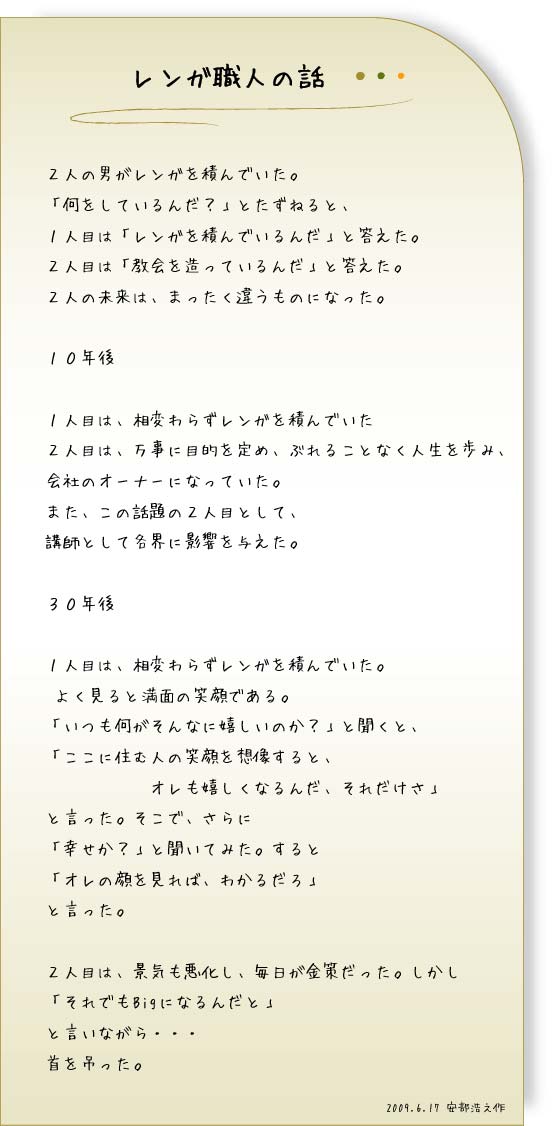 レンガ職人の話
２人の男がレンガを積んでいた。
「何をしているんだ？」とたずねると、
１人目は「レンガを積んでいるんだ」と答えた。
２人目は「教会を造っているんだ」と答えた。
２人の未来は、まったく違うものになった。
１０年後
１人目は、相変わらずレンガを積んでいた
２人目は、万事に目的を定め、ぶれることなく人生を歩み、
会社のオーナーになっていた。
また、この話題の２人目として、
講師として各界に影響を与えた。
３０年後
１人目は、相変わらずレンガを積んでいた。
よく見ると満面の笑顔である。
「いつも何がそんなに嬉しいのか？」と聞くと、
「ここに住む人の笑顔を想像すると、
オレも嬉しくなるんだ、それだけさ」
と言った。そこで、さらに
「幸せか？」と聞いてみた。すると
「オレの顔を見れば、わかるだろ」
と言った。
２人目は、景気も悪化し、毎日が金策だった。しかし
「それでもBigになるんだと」
と言いながら・・・
首を吊った。
2009.6.17 安部浩之作